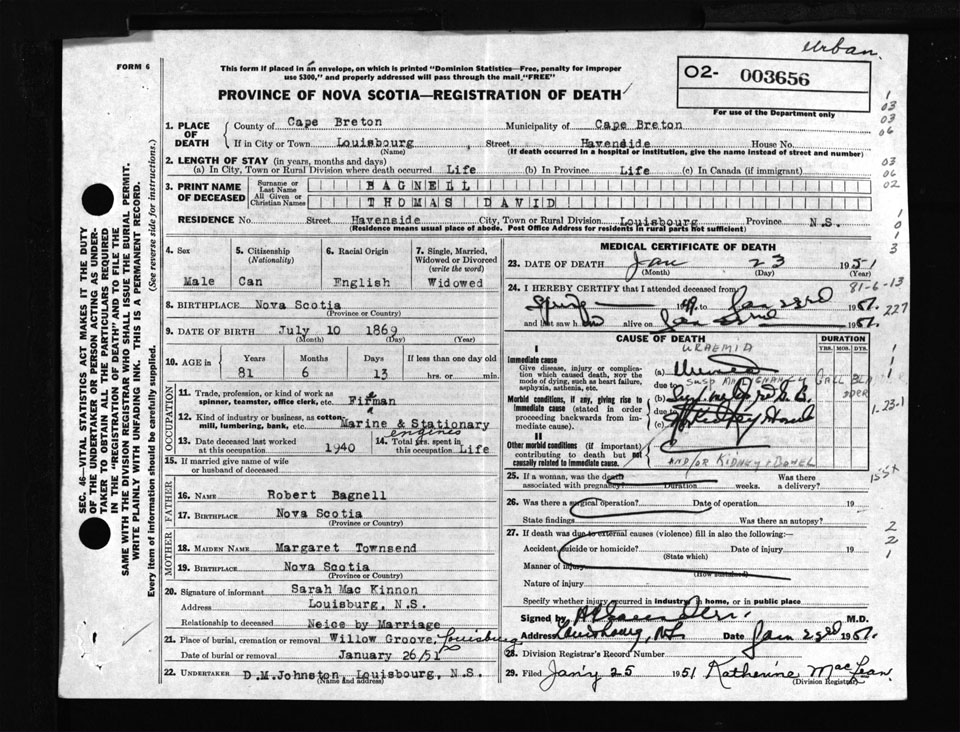 urban.
FORM 6
This form if placed in an envelope, on which is printed "Dominion Statistics—Free, penalty for improper
use $300," and properly addressed will pass through the mail "FREE"
O2- 003656
PROVINCE OF NOVA SCOTIA—REGISTRATION OF DEATH
For use of the Department only
1. PLACE OF DEATH
County of Cape Breton Municipality of Cape Breton
If in City or Town Louisbourg Street Havenside House No.
(Name) (If death occurred in a hospital or institution, give the name instead of street and number)
2. LENGTH OF STAY (in years, months and days)
(a) In City, Town or Rural Division where death occurred Life (b) In Province Life (c) In Canada (if immigrant)
3. PRINT NAME OF DECEASED
Surname or Last Name BAGNELL
All Given or Christian Names THOMAS DAVID
RESIDENCE No. Street Havenside City, Town or Rural Division Louisbourg Province N.S.
(Residence means usual place of abode. Post Office Address for residents in rural parts not sufficient)
4. Sex
Male
5. Citizenship
(Nationality)
Can
6. Racial Origin
English
7. Single, Married, Widowed or Divorced
(write the word)
Widowed
8. BIRTHPLACE Nova Scotia
(Province or Country)
9. DATE OF BIRTH July 10 1869
(Month) (Day) (Year)
10. AGE in
Years Months Days If less than one day old
81 6 13 hrs. or min.
OCCUPATION
11. Trade, profession, or kind of work as
spinner, teamster, office clerk, etc. Fireman
12. Kind of industry or business, as cotton-
mill, lumbering, bank, etc. Marine & Stationary
engines
13. Date deceased last worked
at this occupation 1940
14. Total yrs. spent in
this occupation Life
15. If married give name of wife
or husband of deceased
FATHER
16. NAME Robert Bagnell
17. BIRTHPLACE Nova Scotia
(Province or Country)
MOTHER
18. MAIDEN NAME Margaret Townsend
19. BIRTHPLACE Nova Scotia
(Province or Country)
20. Signature of informant Sarah Mac Kinnon
Address Louisburg, N.S.
Relationship to deceased Neice by Marriage
21. Place of burial, cremation or removal Willow Groove, Louisburg
Date of burial or removal January 26/51
22. UNDERTAKER D.M.Johnston, Louisbourg, N.S.
(Name and address)
MEDICAL CERTIFICATE OF DEATH
23. DATE OF DEATH Jan 23 1951
(Month) (Day) (Year)
24. I HEREBY CERTIFY that I attended deceased from: 81-6-13
Spring 1949 to Jan 23rd 1951
227
and that saw him alive on Jan 23rd 1951
CAUSE OF DEATH
DURATION
YRS. MOS. DYS.
URAEMIA
I
Immediate cause
Give disease, injury or complication which caused death, not the mode of dying, such as heart failure, asphyxia, asthenia, etc.
(a) Uremia
due to SUSP MALIGNANCY GALL BLADDER
Morbid conditions, if any, giving rise to immediate cause (stated in order proceeding backwards from immediate cause).
(b)
due to
(c)
II
Other morbid conditions (if important) contributing to death but not causally related to immediate cause.
AND/OR KIDNEY & BOWEL
25. If a woman, was the death
associated with pregnancy? Duration weeks. Was there
a delivery?
26. Was there a surgical operation? Date of operation 19
State findings Was there an autopsy?
27. If death was due to external causes (violence) fill in also the following:—
Accident, suicide or homicide? Date of injury 19
(State which)
Manner of injury
(How sustained)
Nature of injury
Specify whether injury occurred in industry, in home, or in public place
Signed by M.D.
Address Louisbourg, N.S. Date Jan 23rd 1951.
28. Division Registrar's Record Number
29. Filed Jan'y 25 1951 Katherine MacLean.
(Division Registrar)
SEC. 46—VITAL STATISTICS ACT MAKES IT THE DUTY
OF THE UNDERTAKER OR PERSON ACTING AS UNDER-
TAKER TO OBTAIN ALL THE PARTICULARS REQUIRED
IN THE "REGISTRATION OF DEATH" AND TO FILE THE
SAME WITH THE DIVISION REGISTRAR WHO SHALL ISSUE THE BURIAL PERMIT.
WRITE PLAINLY WITH UNFADING INK. THIS IS A PERMANENT RECORD.
Every item of information should be carefully supplied. (See reverse side for instructions.)
1
03
03
06
03
06
02
1
0
1
3
1
1
1
1-23-1
2
2
1